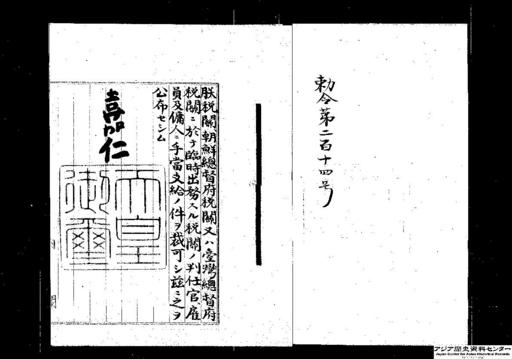 勅令第二百十四号
朕税関朝鮮総督府税関又ハ臺灣総督府
税関ニ於テ臨時出務スル税関ノ判任官、雇
員及傭人ニ手當支給ノ件ヲ裁可シ茲ニ之ヲ
公布セシム
嘉仁
天皇
御璽
アジア歴史資料センター
Japan Center for Asian Historical Records